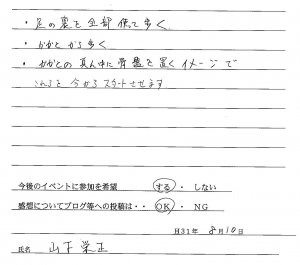 ・足の裏を全部使って歩く
・かかとから歩く
・かかとの真ん中に骨盤を置くイメージで
これらを今からスタートさせます
今後のイベントに参加を希望 する ・ しない
感想についてブログ等への投稿は・・ OK ・ NG
H31年 8月10日
氏名 山下 栄正